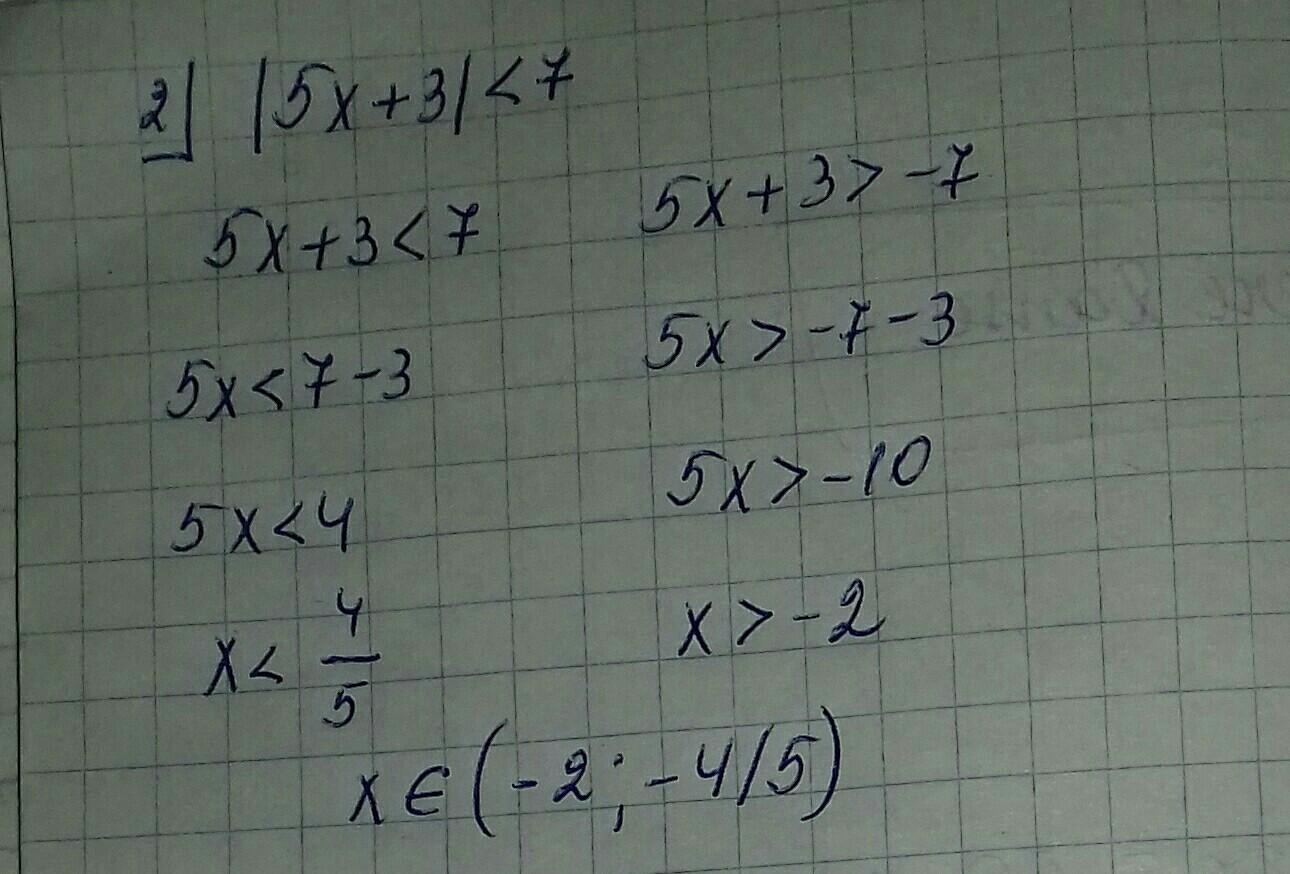 2) |5x+3|<7
5x+3<7 5x+3>-7
5x<7-3 5x>-7-3
5x<4 5x>-10
x< 4/5 x>-2
x∈(-2;-4/5)